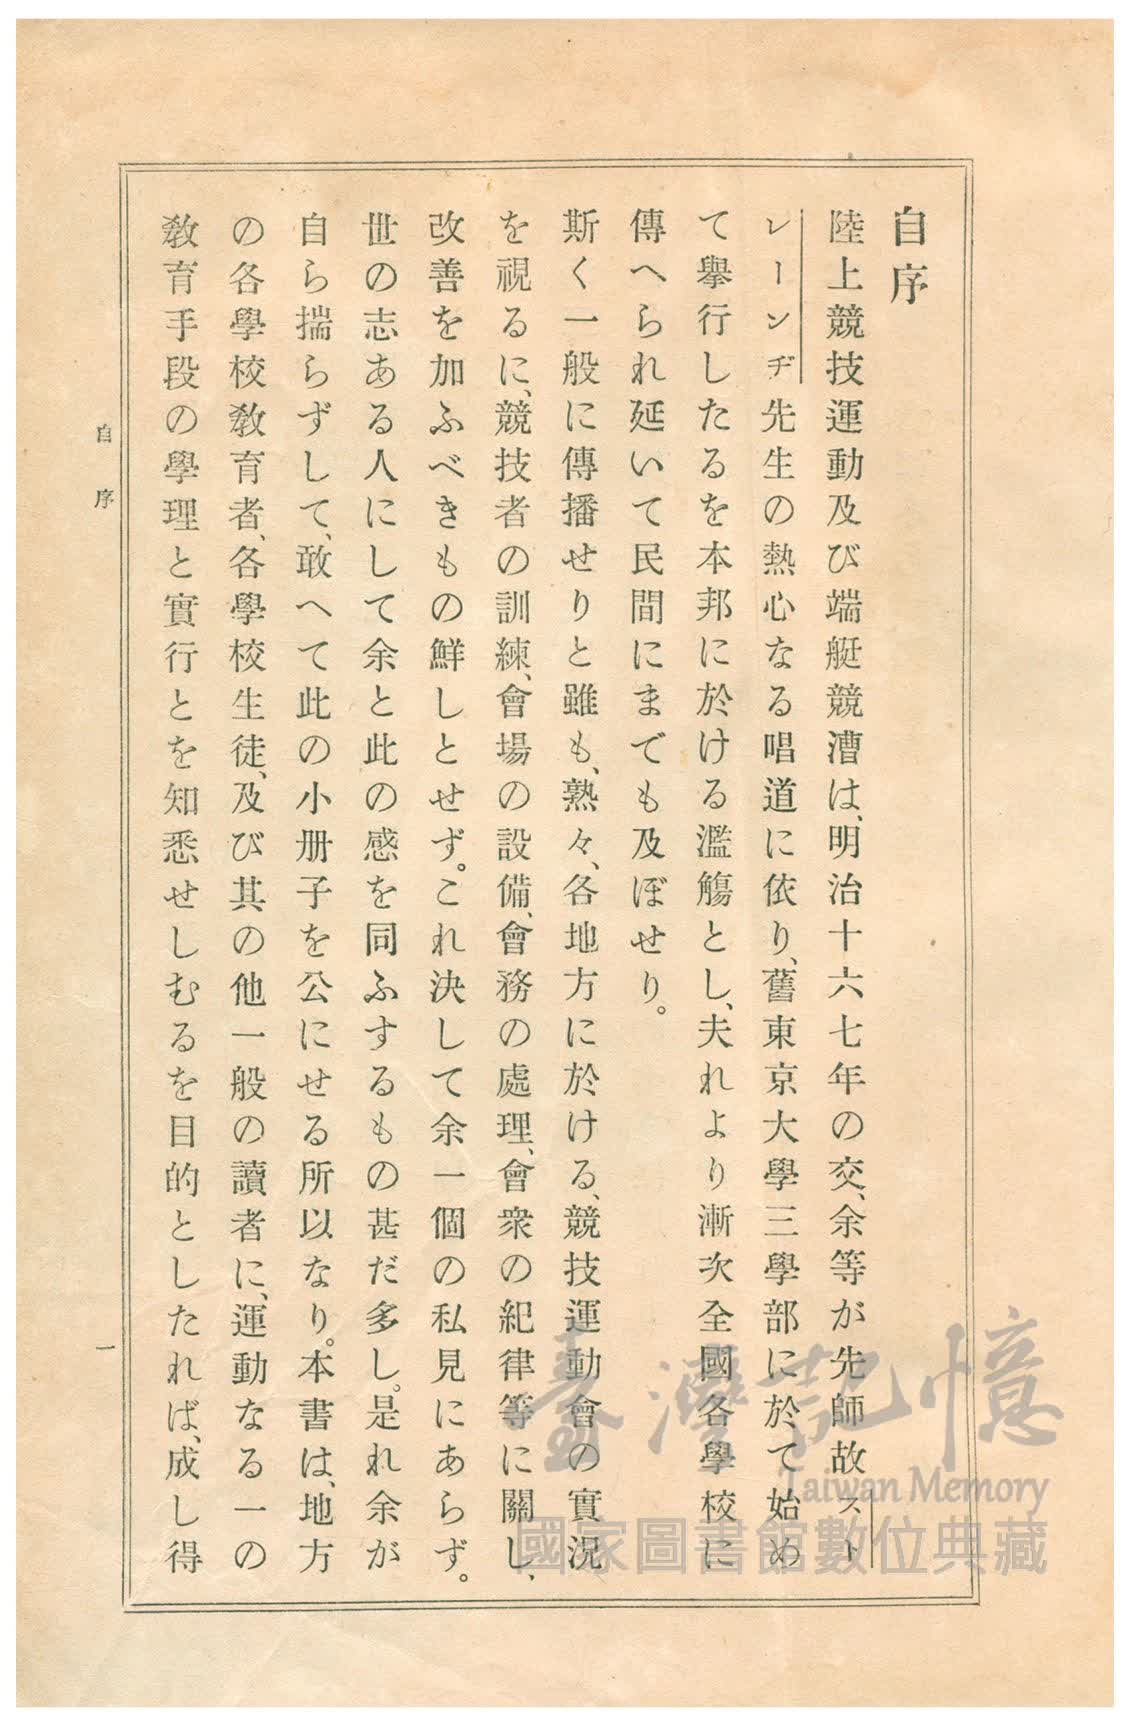 自序
陸上競技運動及び端艇競漕は、明治十六七年の交、余等が先師故スト
レーンヂ先生の熱心なる唱道に依り、舊東京大學三學部に於て始め
て擧行したるを本邦に於ける濫觴とし、夫れより漸次全國各學校に
傳へられ延いて民間にまでも及ぼせり。
斯く一般に傳播せりと雖も、熟々、各地方に於ける、競技運動會の實況
を視るに、競技者の訓練、會場の設備、會務の處理、會衆の紀律等に關し、
改善を加ふべきもの鮮しとせず。これ決して余一個の私見にあらず。
世の志ある人にして余と此の感を同ふするもの甚だ多し。是れ余が
自ら揣らずして、敢へて此の小册子を公にせる所以なり。本書は、地方
の各學校敎育者、各學校生徒、及び其の他一般の讀者に、運動なる一の
敎育手段の學理と實行とを知悉せしむるを目的としたれば、成し得
自序
一
臺灣記憶
Taiwan Memory
國家圖書館數位典藏